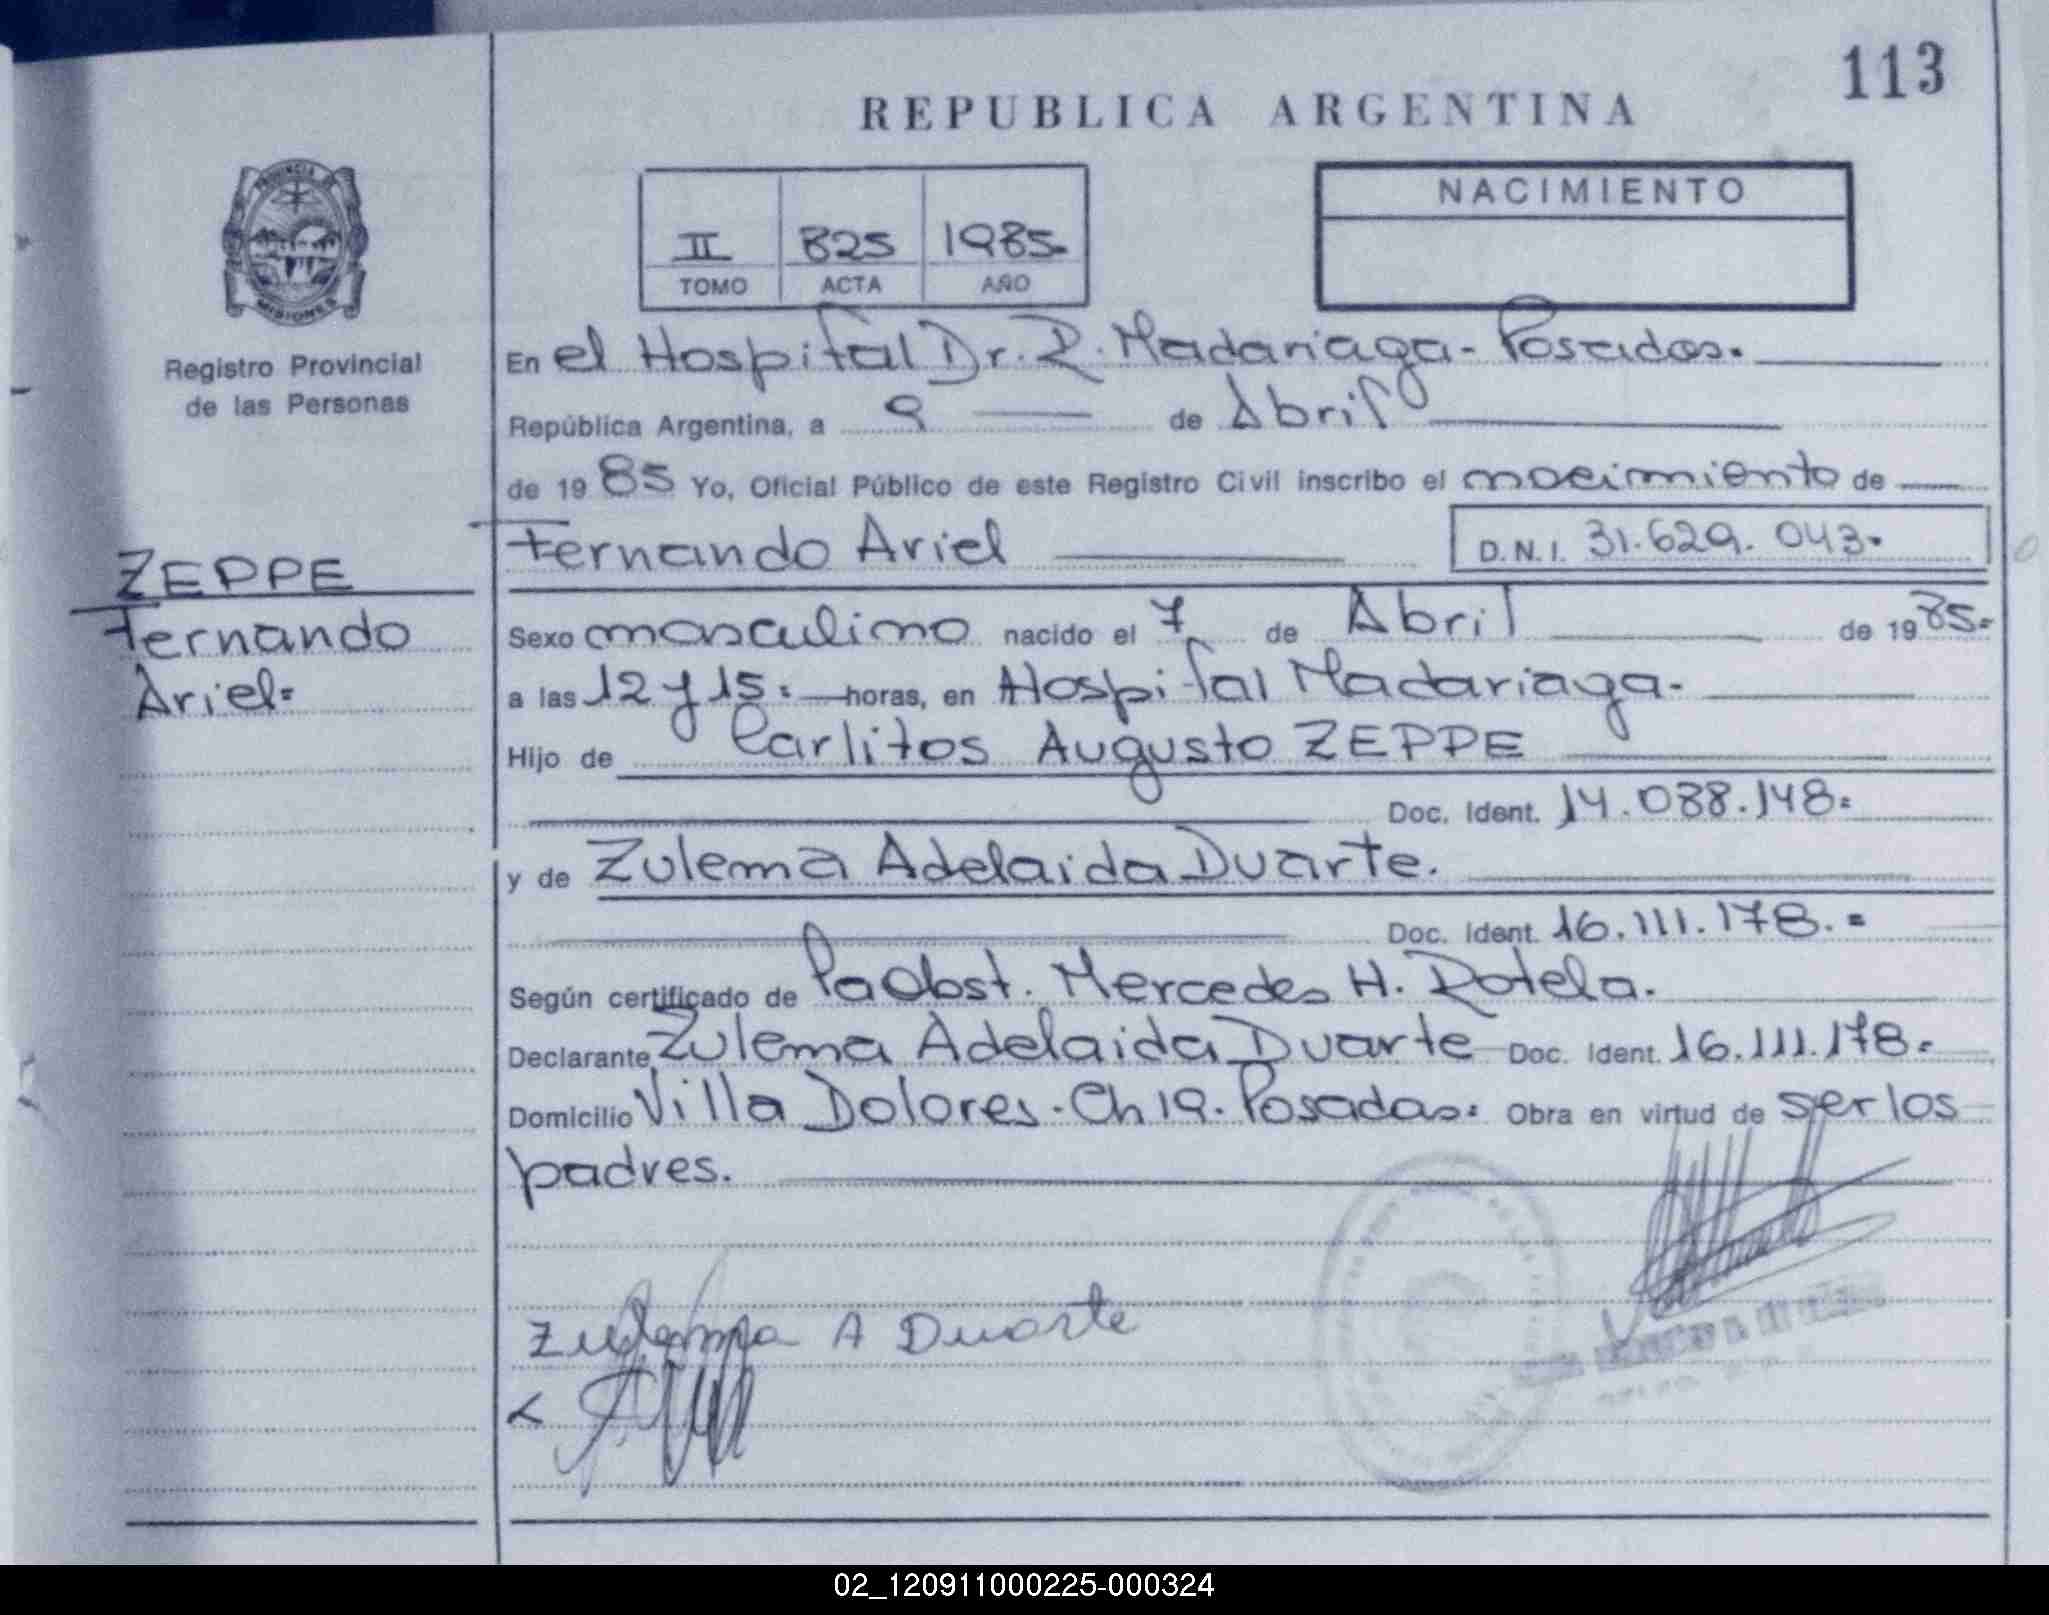 113
REPUBLICA ARGENTINA
PROVINCIA DE
MISIONES
Registro Provincial
de las Personas
II 825 1985
TOMO ACTA AÑO
NACIMIENTO
En el Hospital Dr. R. Madariaga - Posadas.
República Argentina, a 9 de Abril
de 1985 Yo, Oficial Público de este Registro Civil inscribo el nacimiento de
Fernando Ariel D.N.I. 31.629.043.
ZEPPE
Fernando
Ariel=
Sexo masculino nacido el 7 de Abril de 1985=
a las 12 y 15= horas, en Hospital Madariaga.
Hijo de Carlitos Augusto ZEPPE
Doc. Ident. 14.088.148=
y de Zulema Adelaida Duarte.
Doc. Ident. 16.111.178.=
Según certificado de PaObst. Mercedes H. Rotela.
Declarante, Zulema Adelaida Duarte Doc. Ident. 16.111.178=
Domicilio Villa Dolores. Ch 19. Posadas= Obra en virtud de ser los
padres.
Zulema A Duarte
02_120911000225-000324